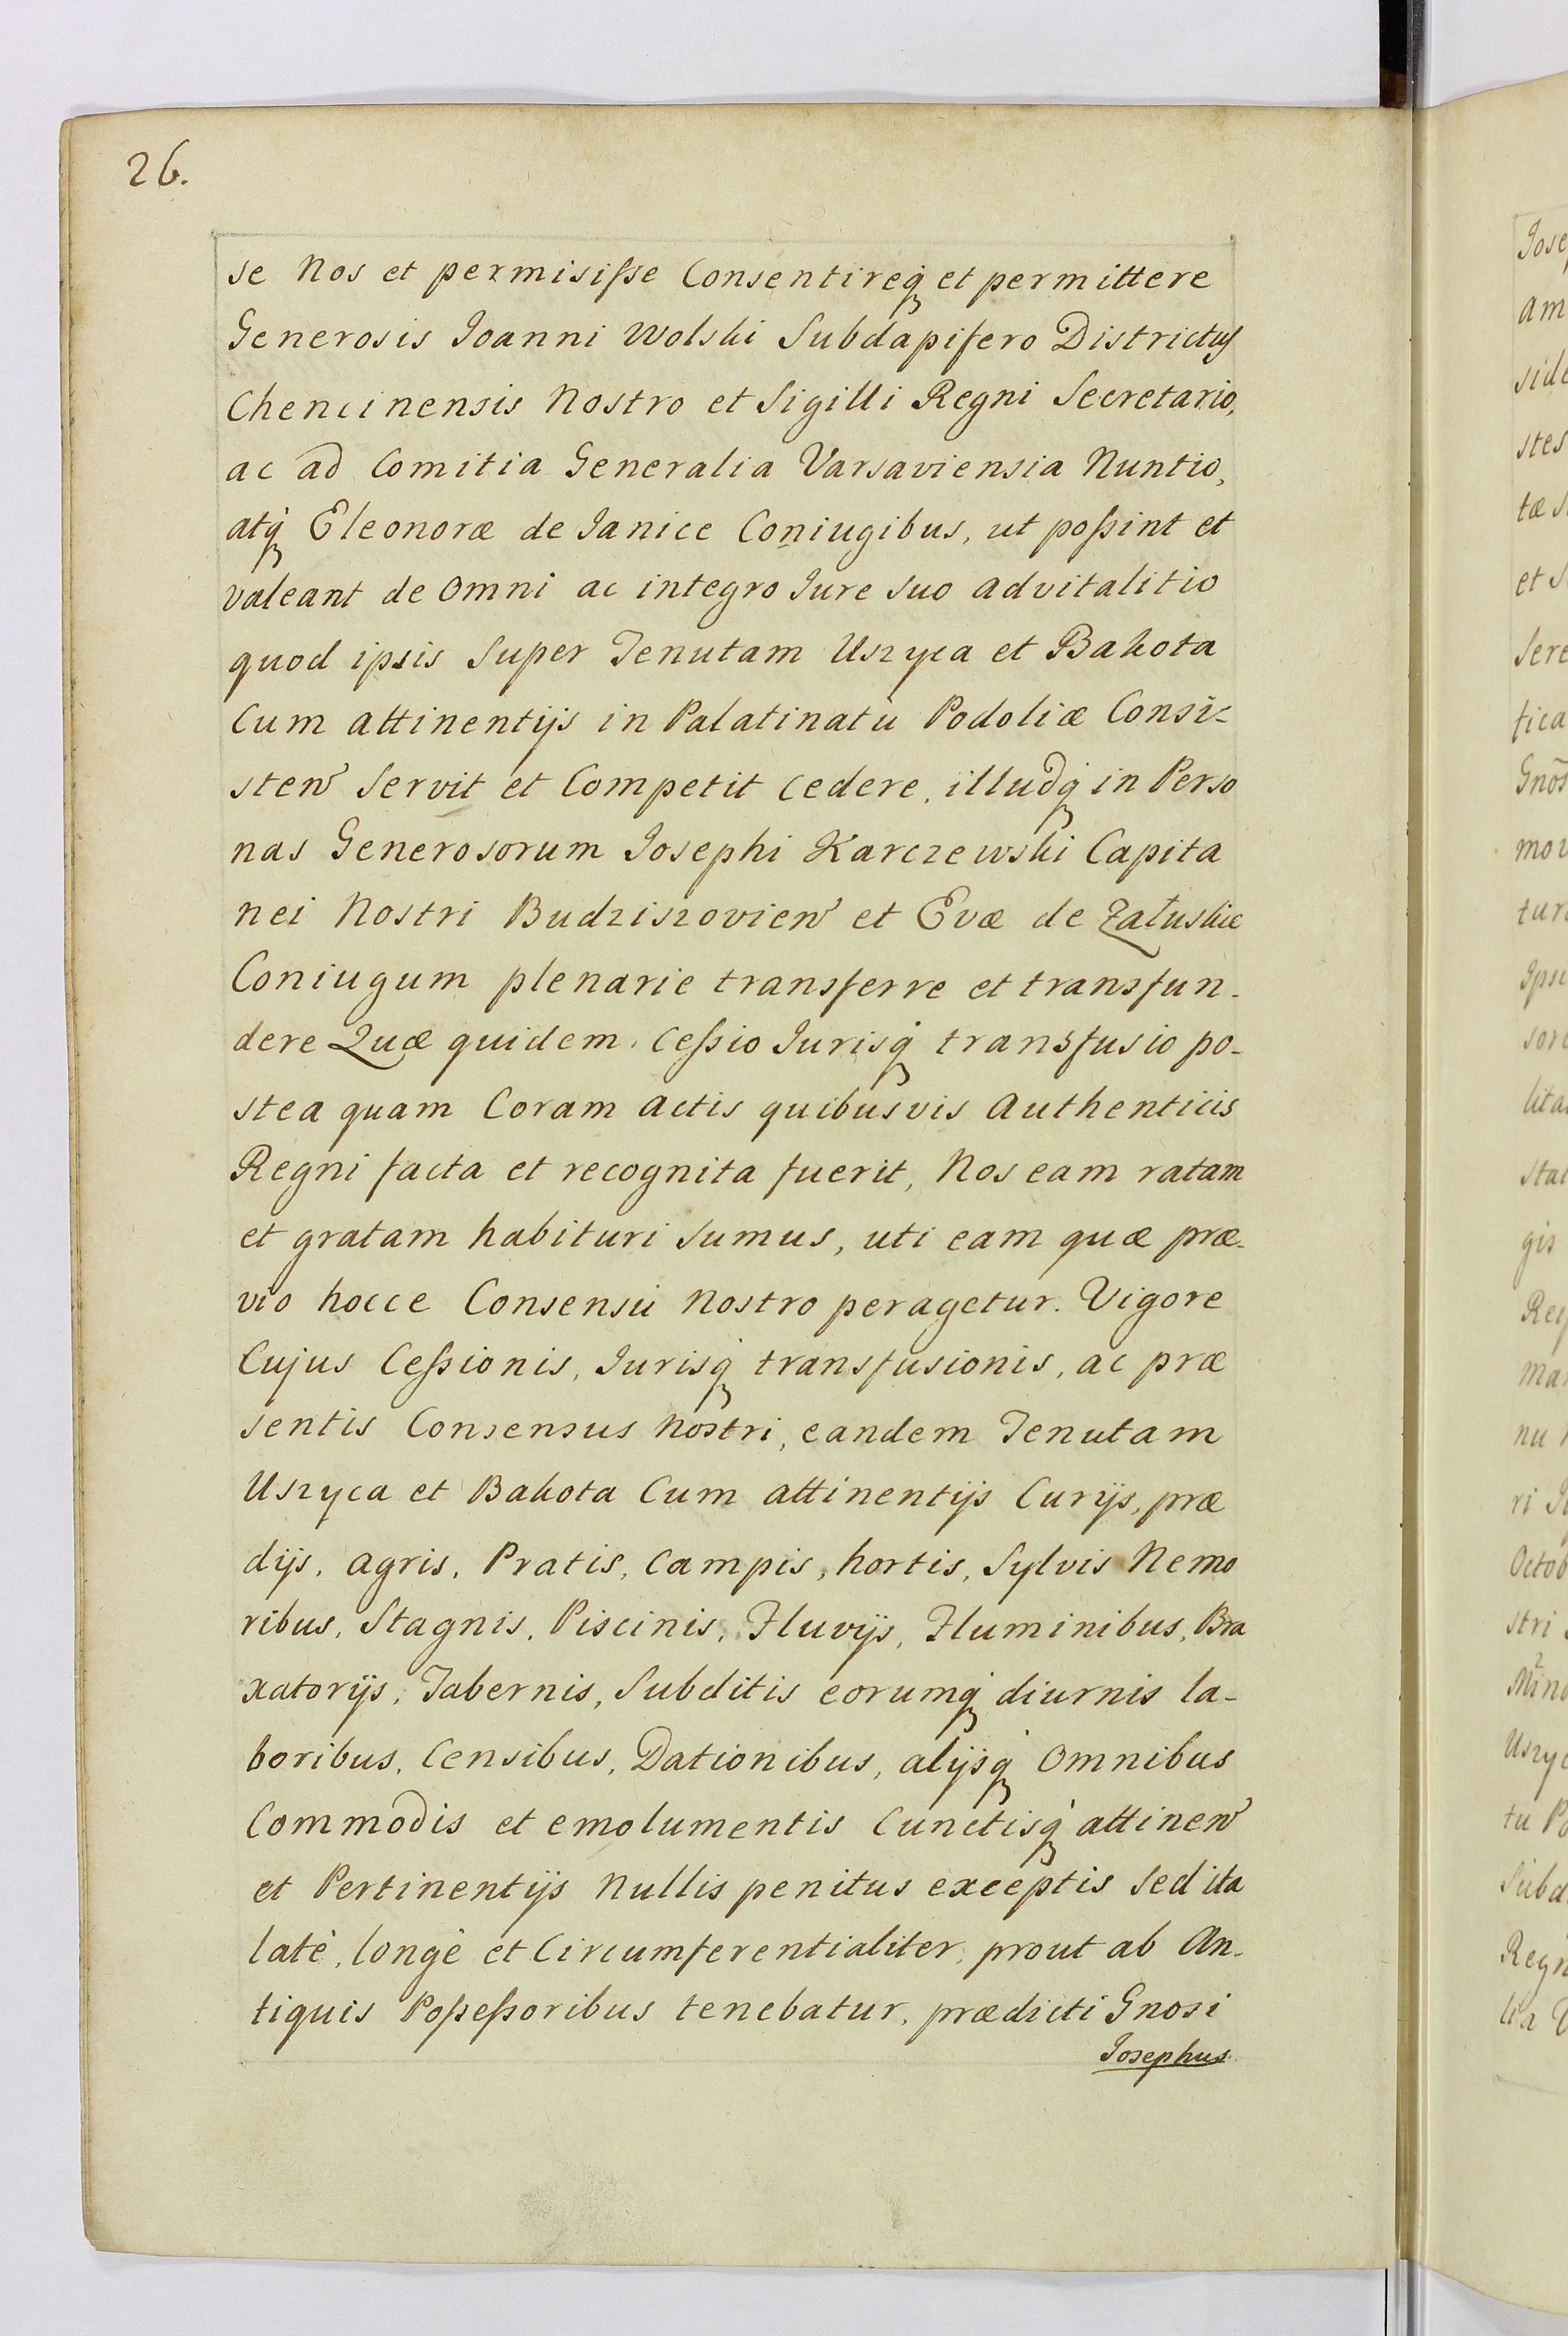 26.
se Nos et permisisse Consentireq́ et permittere
Generosis Joanni Wolski Subdapifero Districtus
Chencinensis Nostro et Sigilli Regni Secretario,
ac ad Comitia Generalia Varsaviensia Nuntio,
atq́ Eleonoræ de Janice Coniugibus, ut poßint et
valeant de Omni ac integro Jure suo advitalitio
quod ipsis Super Tenutam Uszyca et Bakota
Cum attinentijs in Palatinatu Podoliæ Consi-
sten̄ Servit et Competit cedere, illudq́ in Perso
nas Generosorum Josephi Karczewski Capita
nei Nostri Budziszovien̄ et Evæ de Załuskie
Coniugum plenarie transferre et transfun-
dere Quæ quidem Ceßio Jurisq́ transfusio po-
stea quam Coram actis quibusvis Authenticis
Regni facta et recognita fuerit, Nos eam ratam
et gratam habituri sumus, uti eam quæ præ-
vio hocce Consensu Nostro peragetur. Vigore
Cujus Ceßionis, Jurisq́ transfusionis, ac præ
sentis Consensus Nostri, eandem Tenutam
Uszyca et Bakota Cum attinentijs Curijs, præ
dijs, agris, Pratis, Campis, hortis, Sylvis Nemo
ribus, Stagnis, Piscinis, Fluvijs, Fluminibus, Bra
xatorijs, Tabernis, Subditis eorumq́ diurnis la-
boribus, Censibus, Dationibus, alijsq́ Omnibus
Commodis et emolumentis Cunctisq́ attinen̄
et Pertinentijs Nullis penitus exceptis Sed ita
latè, longè et Circumferentialiter, prout ab An-
tiquis Poßeßoribus tenebatur, prædicti Gnosi
Josephus
Jose
am
side
stes
tæ s
et s
Sere
fica
Gnōs
mov
tur
Ipsi
sor
lita
stat
gis
Reg
ma
nu
ri J
Octob
stri
Uszyc
tu P
Subd
Regn
lia V